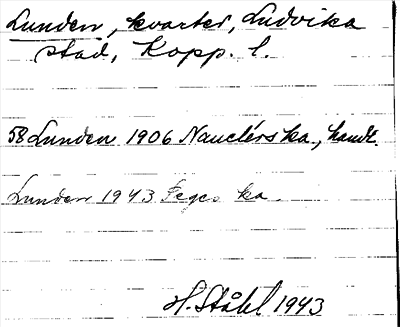 Lunden, kvarter, Ludvika
stad, Kopp. l.
58 Lunden 1906 Nauclérs ka, handl.
Lunden 1943 Feges ka.
H. Ståhl 1943